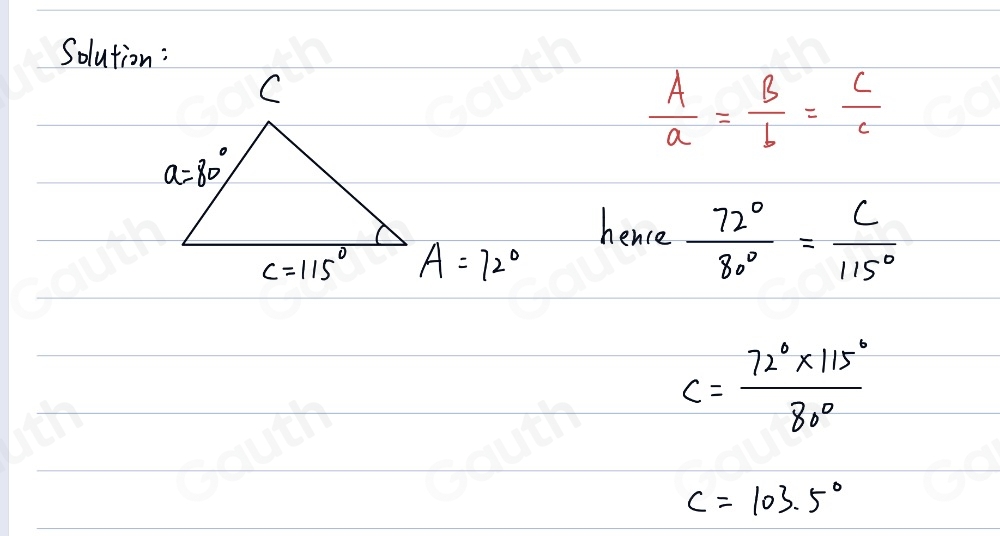 Solution:
C
a=80°
c=115°
A=72°
A/a = B/b = C/c
hence 72°/80° = C/115°
C = 72°×115°/80°
C = 103.5°
Gauth